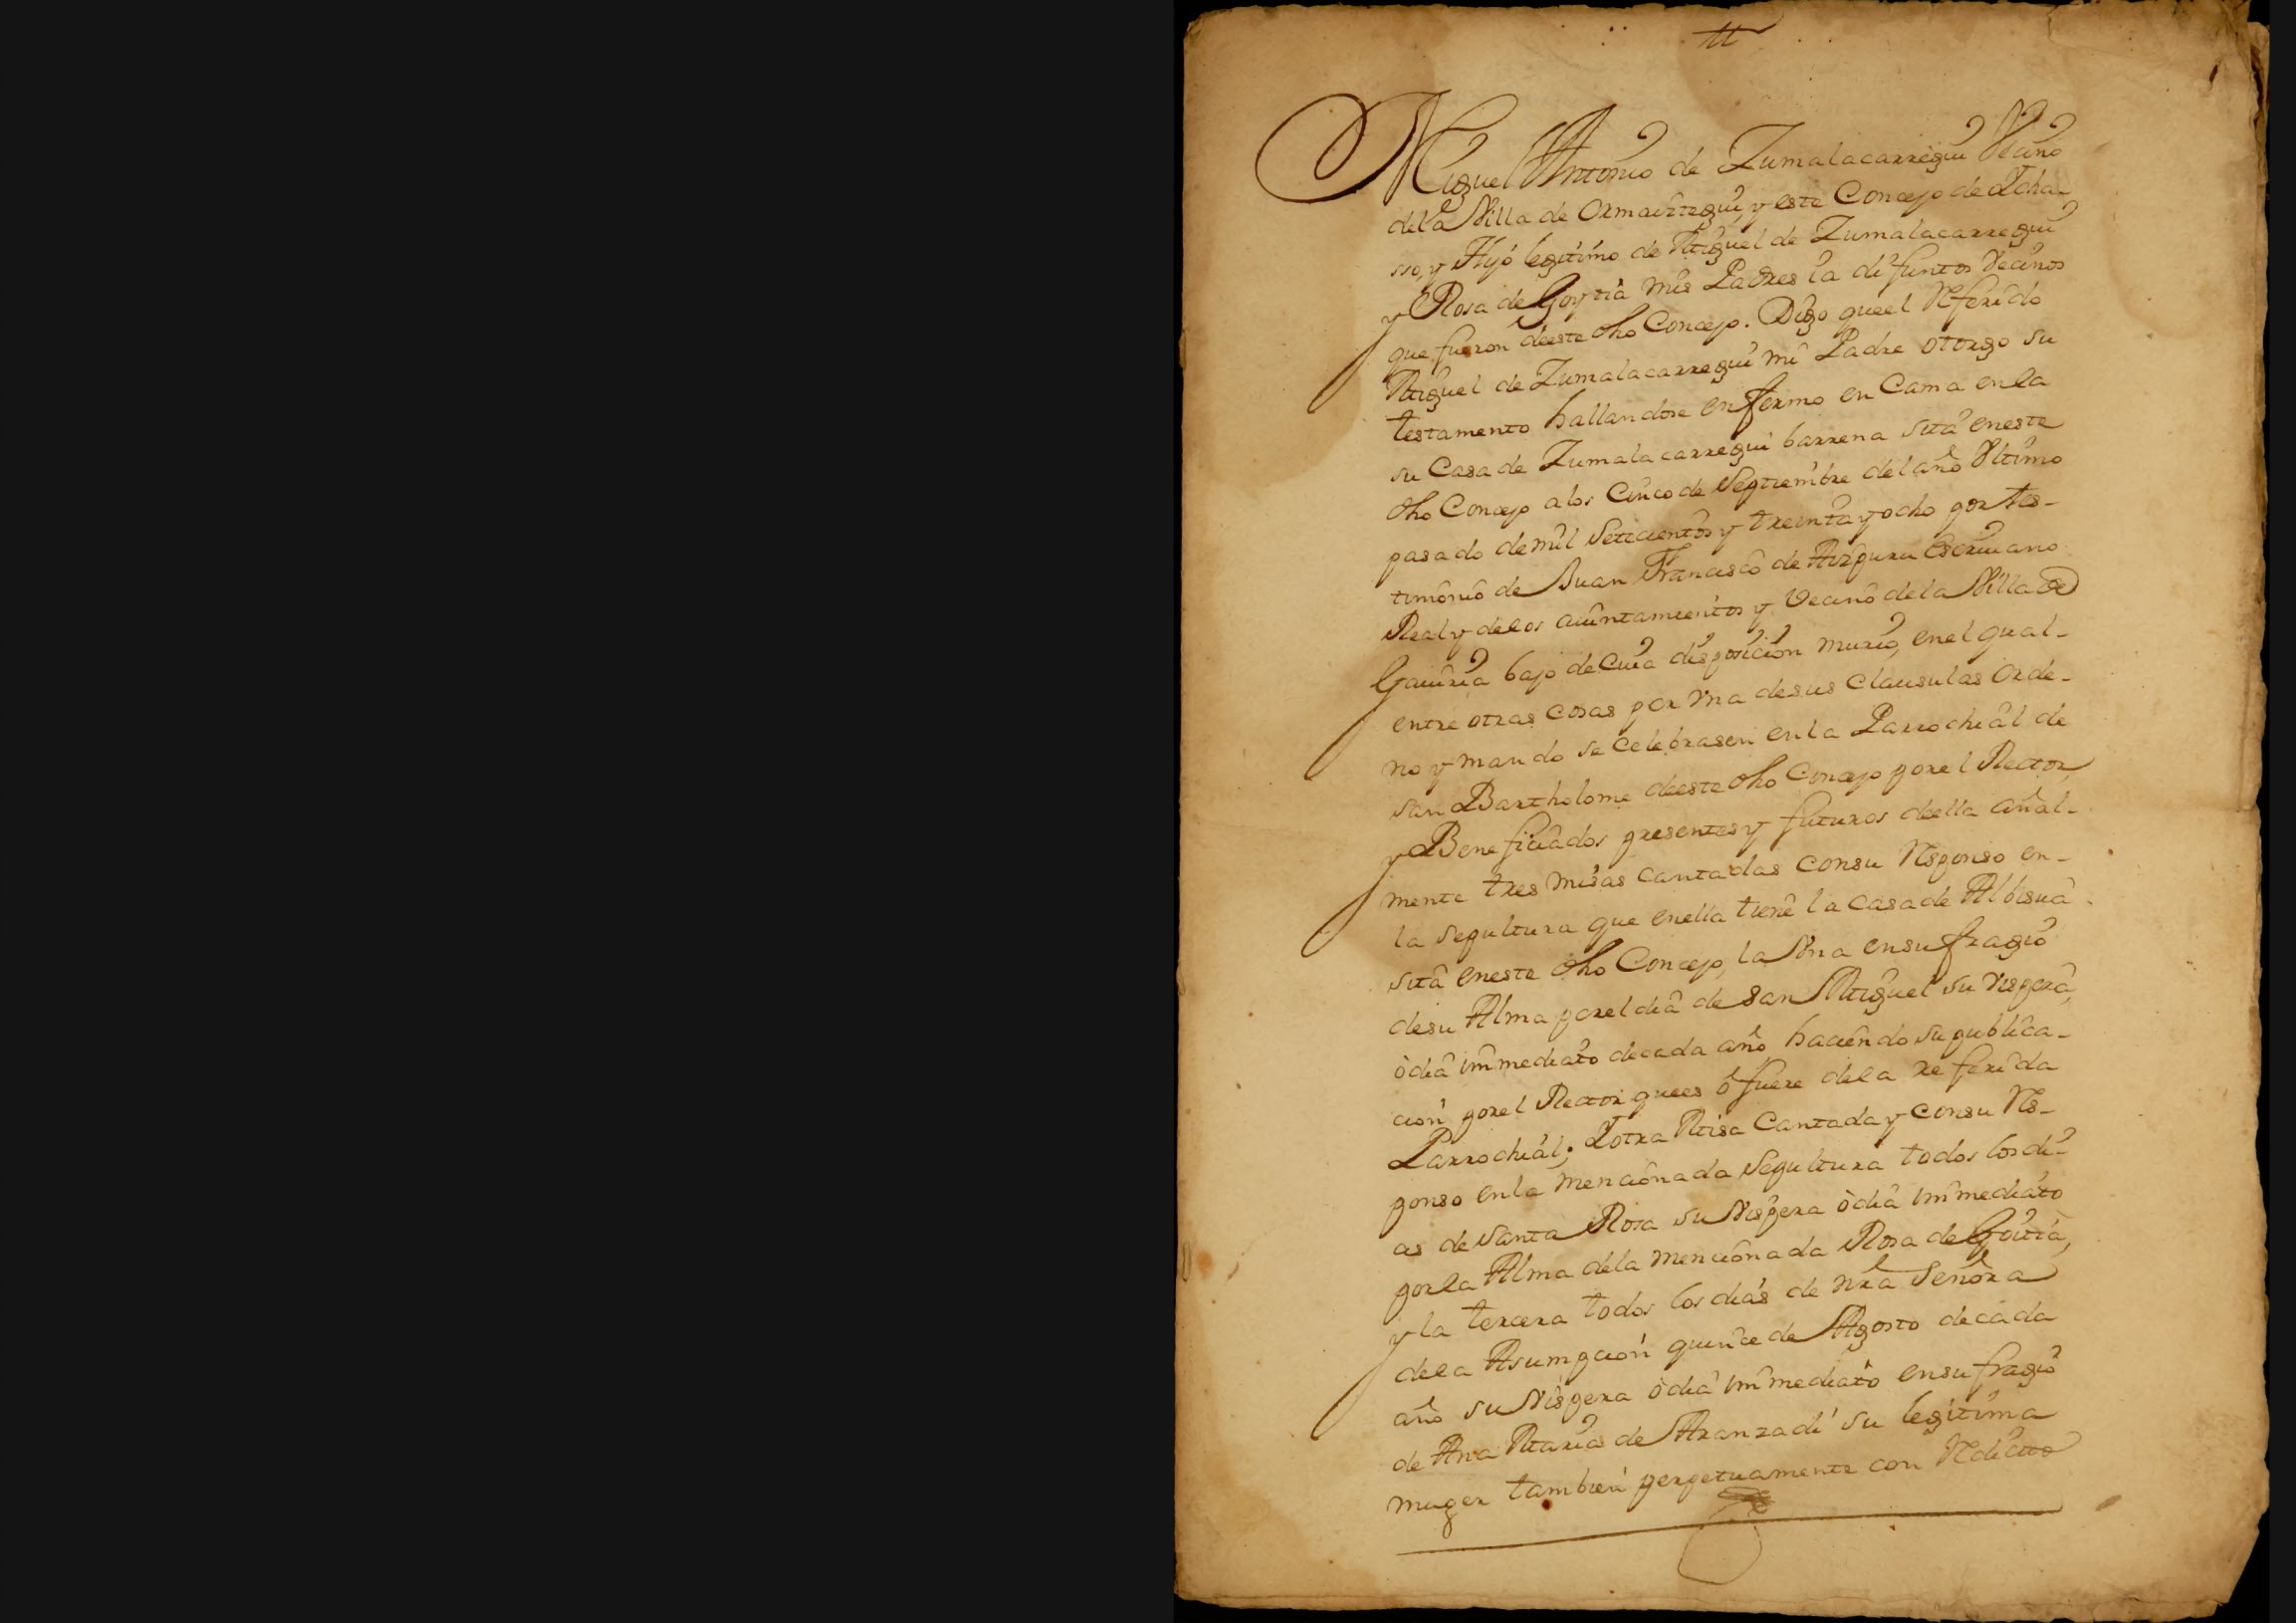 Miguel Antonio de Zumalacarregui Vecino
dela Villa de Ormaiztegui, y este Concejo de Ycha-
sso, y Hijo legitimo de Miguel de Zumalacarregui
y Rosa de Goytia mis Padres ia difuntos Vecinos
que fueron deeste dho Concejo. Digo queel Referido
Miguel de Zumalacarregui mi Padre otorgo su
testamento hallandose enfermo en Cama en la
su Casa de Zumalacarregui barrena sita eneste
dho Concejo alos Cinco de Septiembre del año Vltimo
pasado de mil Setecientos y treinta y ocho por tes-
timonio de Juan Francisco de Aizpuru Escriuano
Real y delos aiuntamientos y Vecino dela Villa de
Gauiria bajo de Cuia disposicion murio, enel qual-
entre otras cosas por vna desus Clausulas Orde-
no y mando se Celebrasen enla Parrochial de
san Bartholome deeste dho Concejo porel Rector,
y Beneficiados presentes y futuros deella añal-
mente tres misas cantadas consu Responso en-
la sepultura que enella tiene la casa de Albisua
sita eneste dho Concejo, la Vna ensufragio
desu Alma porel dia de san Miguel su vispera,
ò dia immediato decada año haciendo su publica-
cion porel Rector quees ò fuere dela referida
Parrochial; Yotra Misa Cantada y consu Res-
ponso enla mencionada sepultura todos los di-
as de Santa Rosa su Vispera ò dia immediato
porla Alma dela mencionada Rosa de Goitia,
y la tercera todos los dias de nra Señora
dela Asumpcion quince de Agosto decada
año su Vispera ò dia immediato ensufragio
de Ana Maria de Aranzadi su legitima
muger tambien perpetuamente con Redicto